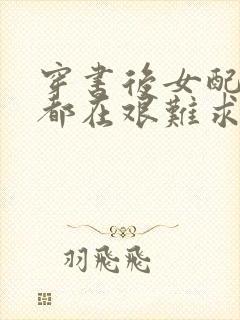 穿書後女配
都在艱難求
羽飛飛